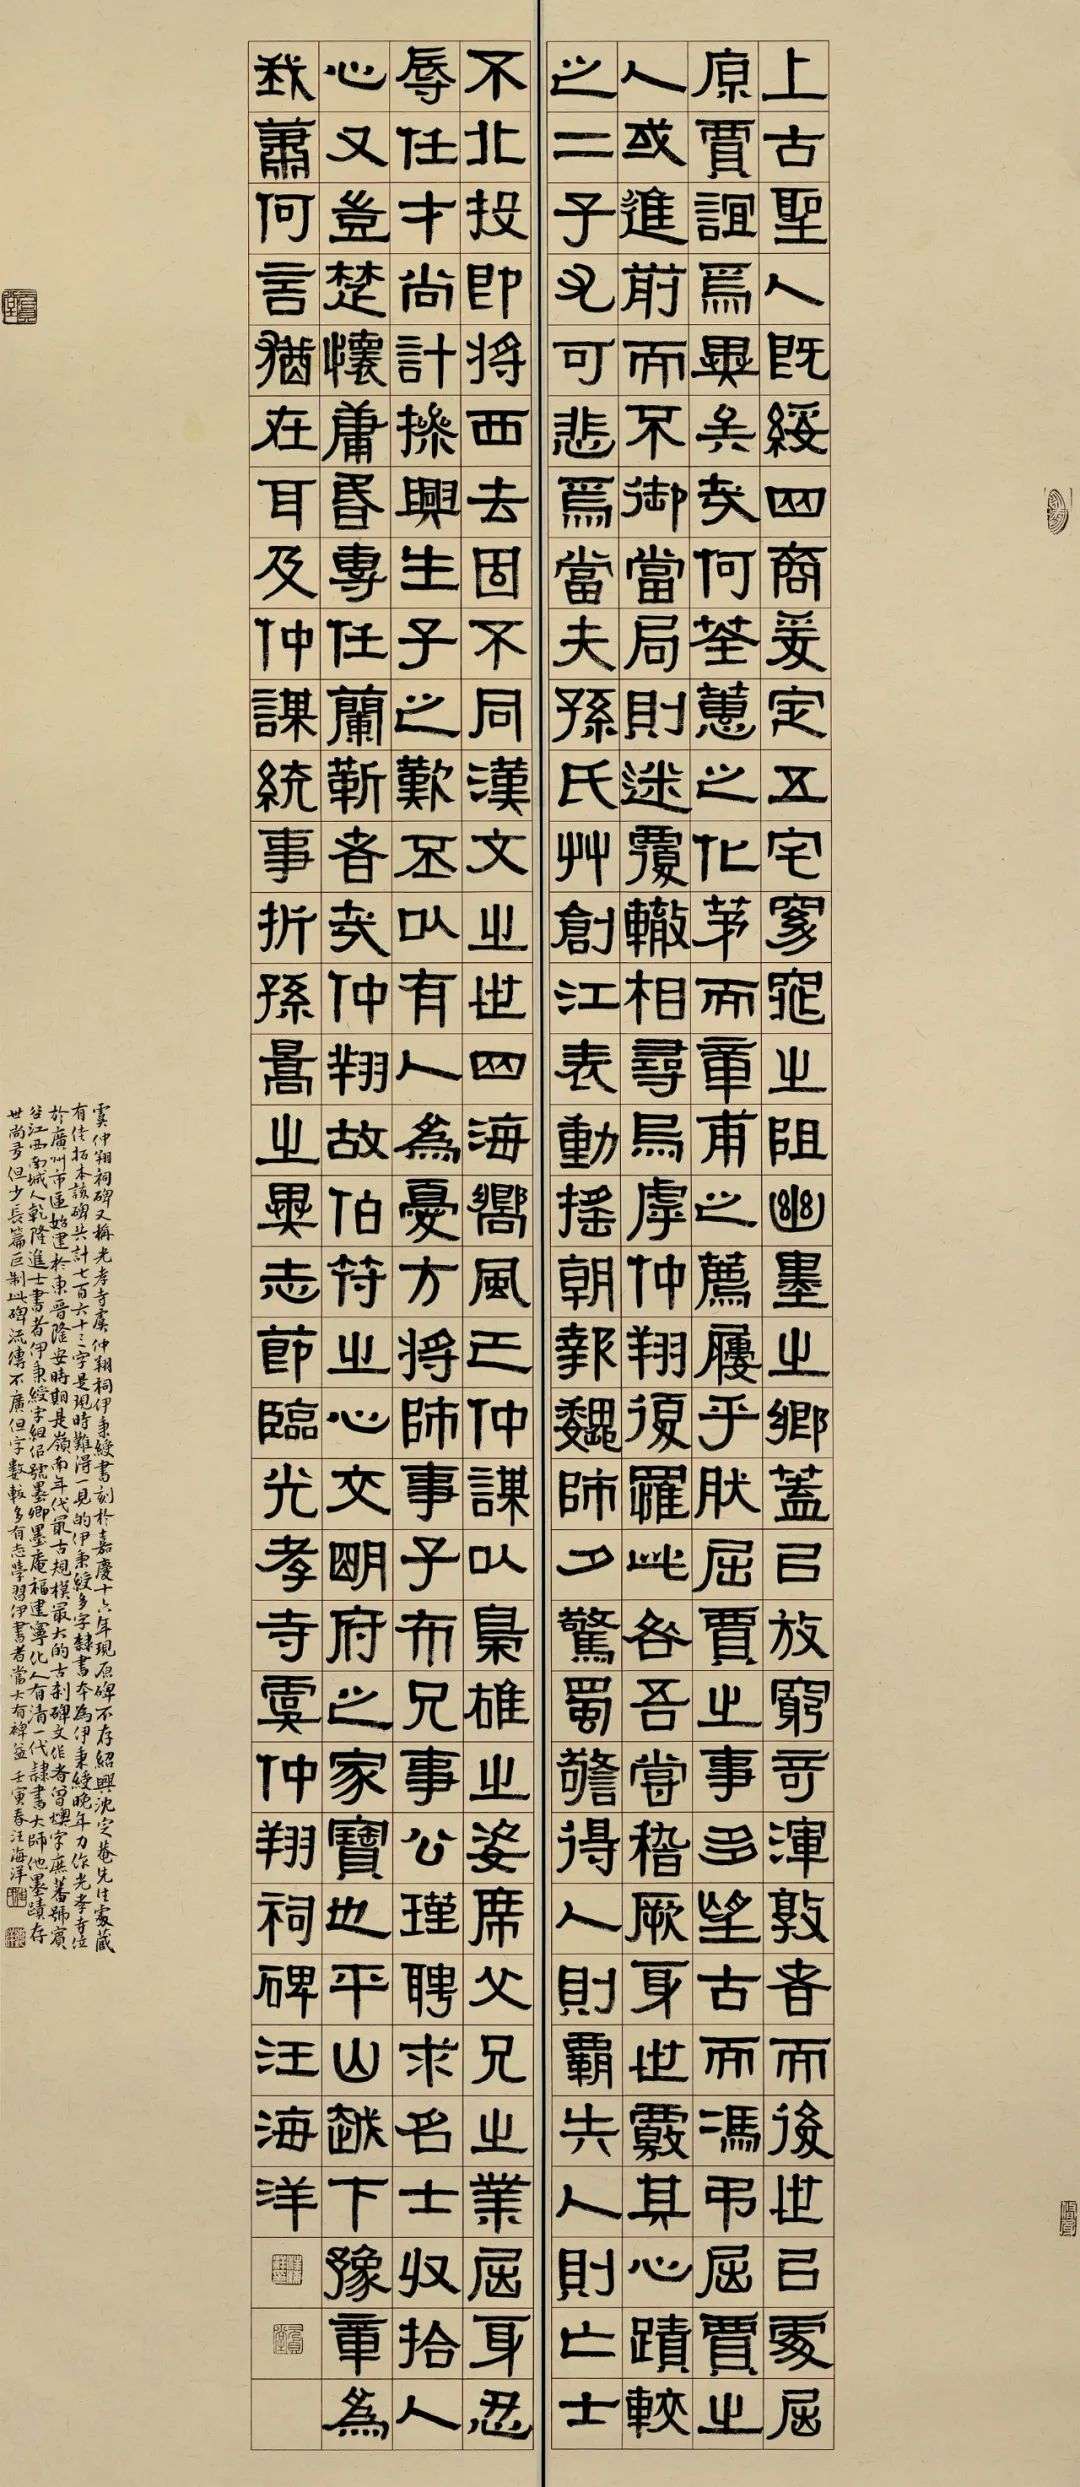 上古聖人既綏四裔爰定五宅窮窕之阻幽墨之鄉蓋㠯放窮奇渾敦者而後世㠯處屈
原賈誼焉異矣哉何荃蕙之化茅而章甫之薦屨乎肰屈賈之事多望古而馮弔屈賈之
人或進前而不御當局則迷覆轍相尋烏虖仲翔復罹此咎吾嘗稽厥身世覈其心蹟較
之二子尤可悲焉當夫孫氏艸創江表動搖朝報魏師夕驚蜀警得人則霸失人則亡士
不北投即將西去固不同漢文之世四海嚮風已仲謀以梟雄之姿席父兄之業屈身忍
辱任才尚計操興生子之歎丕以有人為憂方將師事子布兄事公瑾聘求名士收拾人
心又豈楚懷庸昏專任蘭靳者哉仲翔故伯符之心交明府之家寶也平山越下豫章為
我蕭何言猶在耳及仲謀統事折孫暠之異志節臨光孝寺虞仲翔祠碑汪海洋
虞仲翔祠碑又稱光孝寺虞仲翔祠伊秉綬書刻於嘉慶十六年現原碑不存紹興沈定菴先生處藏
有佳拓本該碑共計七百六十三字是現時難得一見的伊秉綬多字隸書本為伊秉綬晚年力作光孝寺位
於廣州市區始建於東晉隆安時期是嶺南年代最古規模最大的古刹碑文作者曾燠字庶蕃號賓
谷江西南城人乾隆進士書者伊秉綬字組佀號墨卿墨庵福建寧化人有清一代隸書大師他墨蹟存
世尚多但少長篇巨制此碑流傳不廣但字數較多有志學習伊書者當大有裨益壬寅春汪海洋